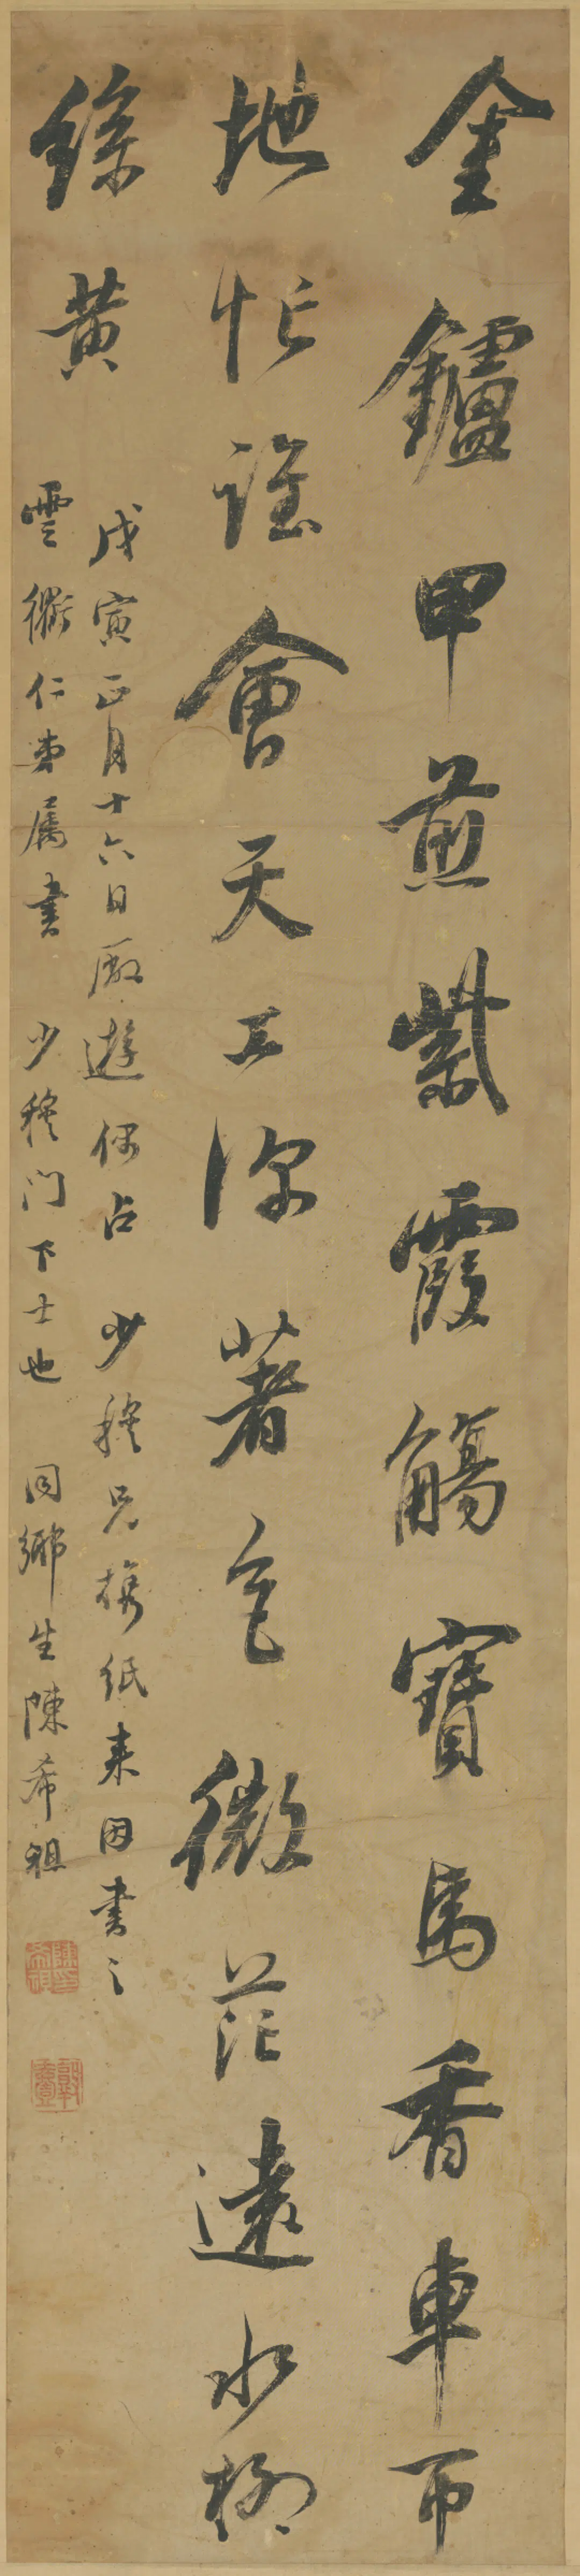 金鑪甲煎紫霞觴寶馬香車帀
地忙誰會天工深著色微茫遠水柳
絲黃
戊寅正月十六日廠遊偶占 少穆兄携紙来因書之
雲衢仁弟屬書 少穆門下士也 同鄉生陳希祖